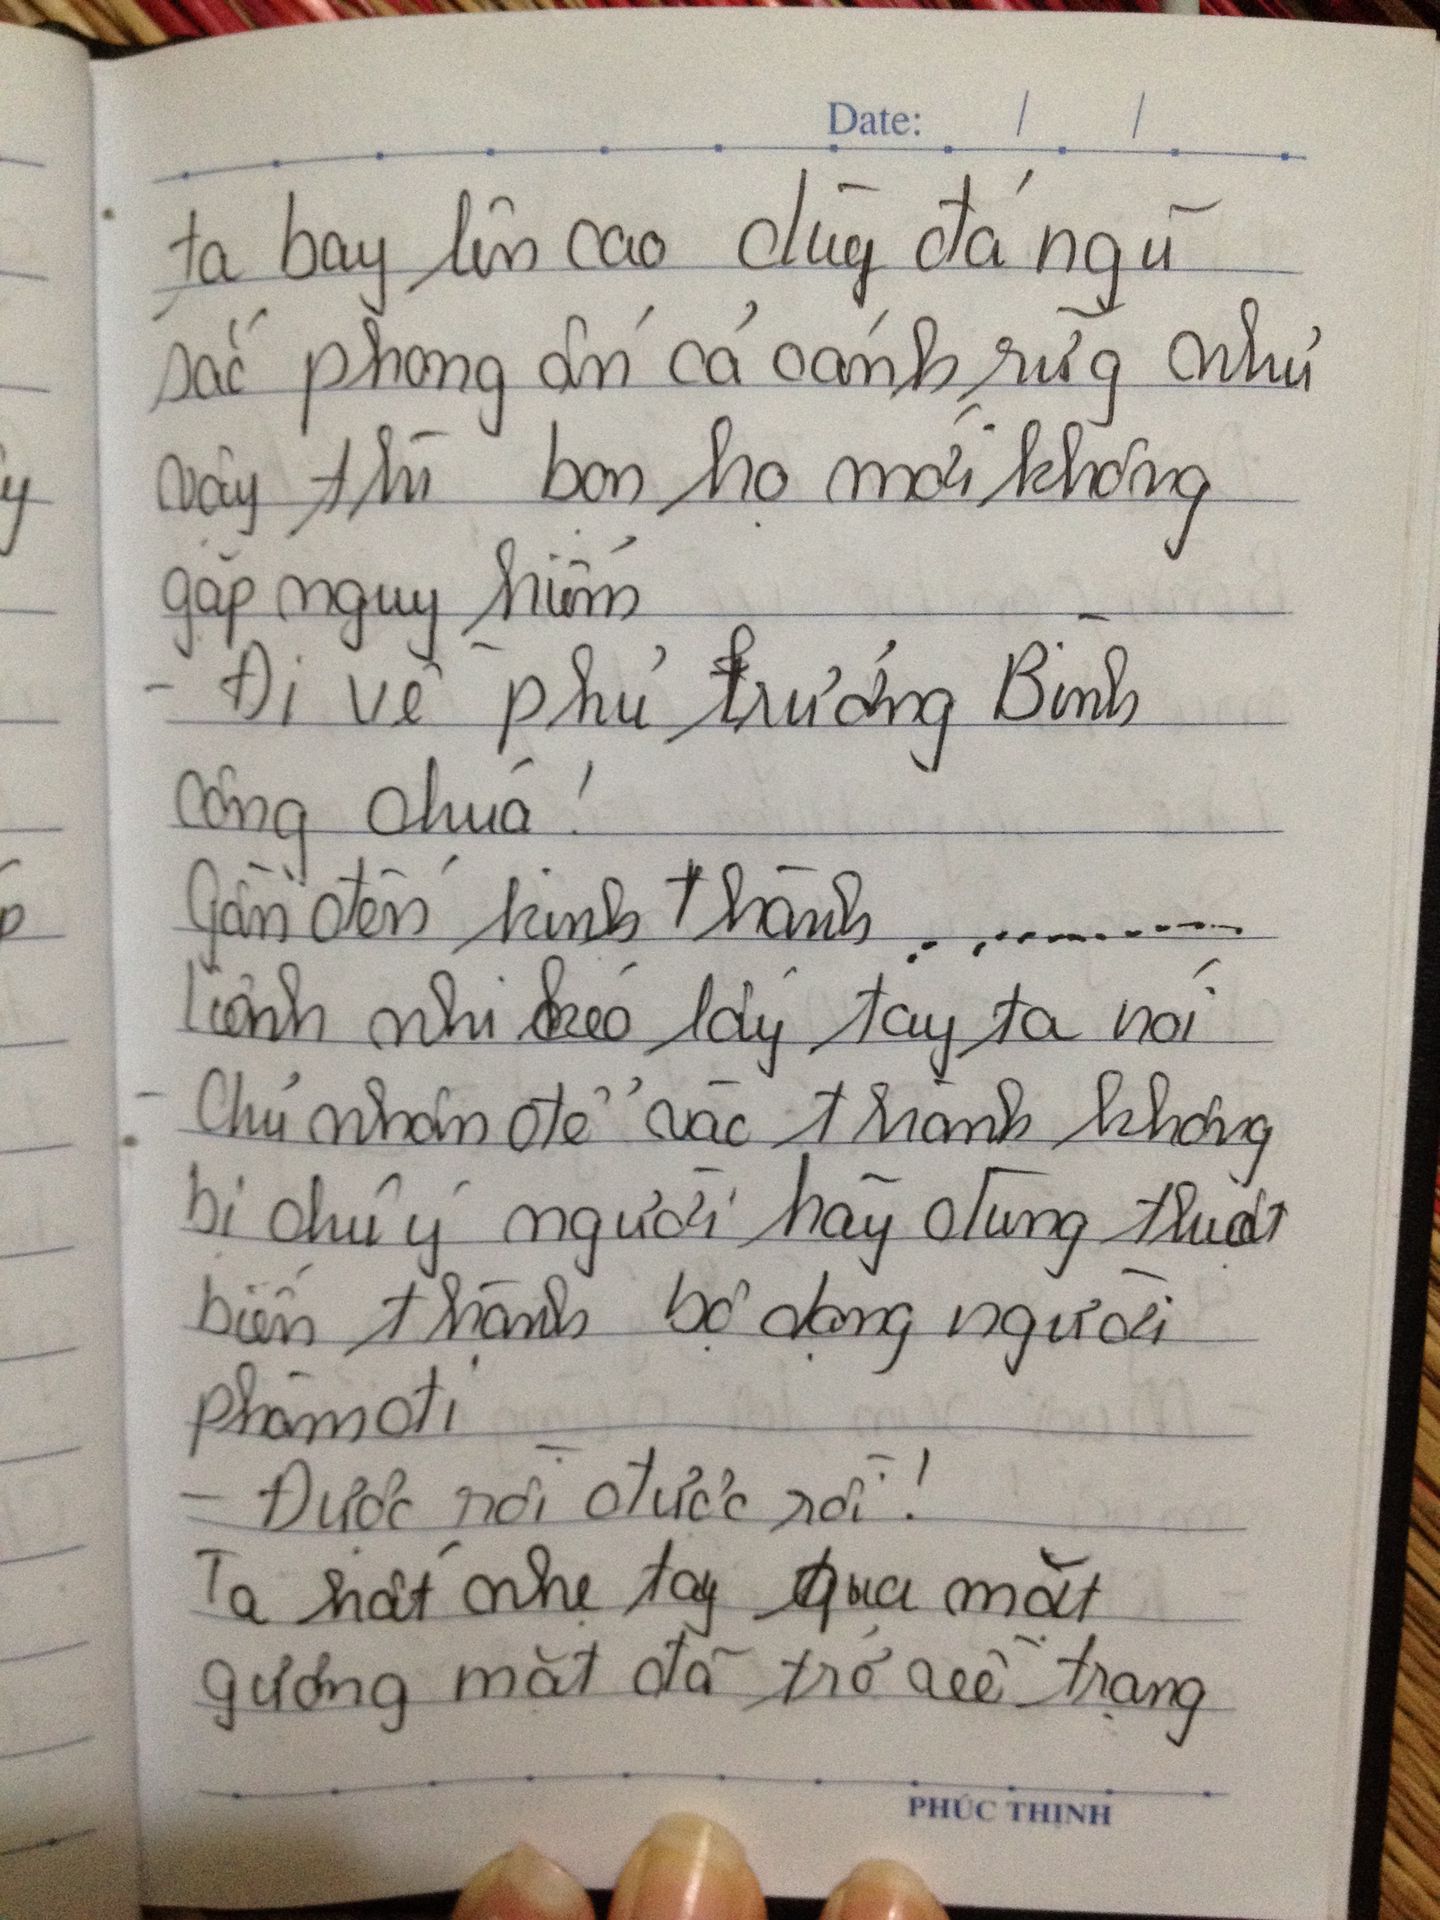 Date: / /
ta bay lên cao dùg đá ngũ
sắc phong ấn cả cánh rừg như
vậy thì bọn họ mới không
gặp nguy hiểm
- Đi về phủ trưởng Bình
công chúa!
Gần đến kinh thành . ..........
Liên nhi kéo lấy tay ta nói
- Chủ nhân để vào thành không
bị chú ý người hãy dùng thuật
biến thành bộ dạng người
phàm đi
- Được rồi được rồi!
Ta hất nhẹ tay qua mặt
gương mặt đã trở về trạng
PHÚC THỊNH